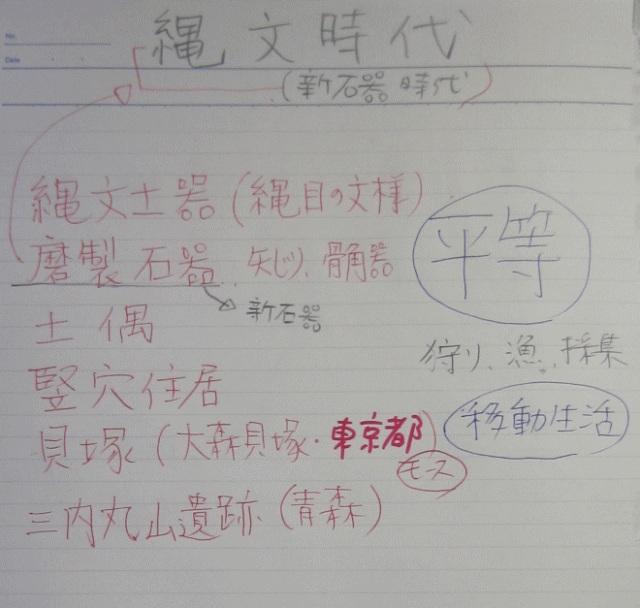 No.
Date
縄文時代
(新石器時代)
縄文土器(縄目の文様)
磨製石器、矢じり、骨角器
新石器
平等
土偶
狩り、漁、採集
竪穴住居
移動生活
貝塚(大森貝塚・東京都)
モース
三内丸山遺跡(青森)